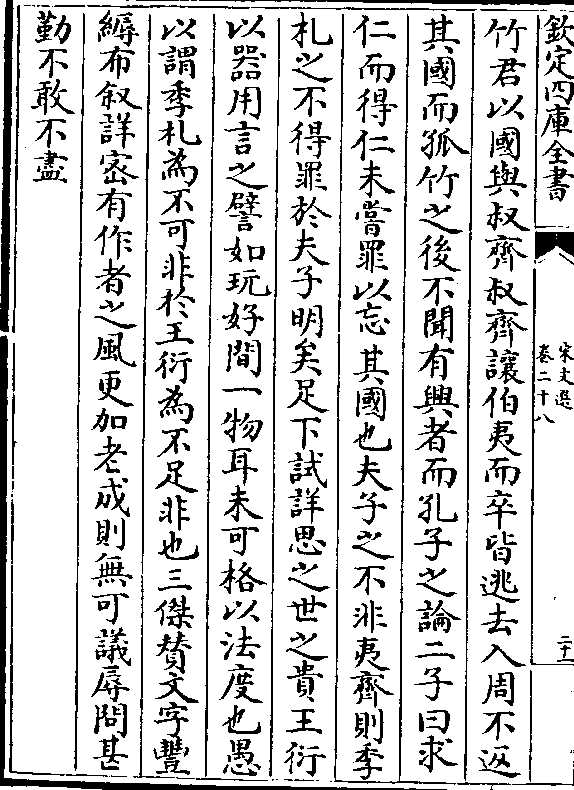 欽定四庫全書
宋文選
卷二十八
二十一
竹君以國與叔齊叔齊讓伯夷而卒皆逃去入周不返
其國而孤竹之後不聞有興者而孔子之論二子曰求
仁而得仁未嘗罪以忘其國也夫子之不非夷齊則季
札之不得罪於夫子明矣足下試詳思之世之貴王衍
以器用言之譬如玩好間一物耳未可格以法度也愚
以謂季札為不可非於王衍為不足非也三傑賛文字豐
縟布叙詳宻有作者之風更加老成則無可議辱問甚
勤不敢不盡